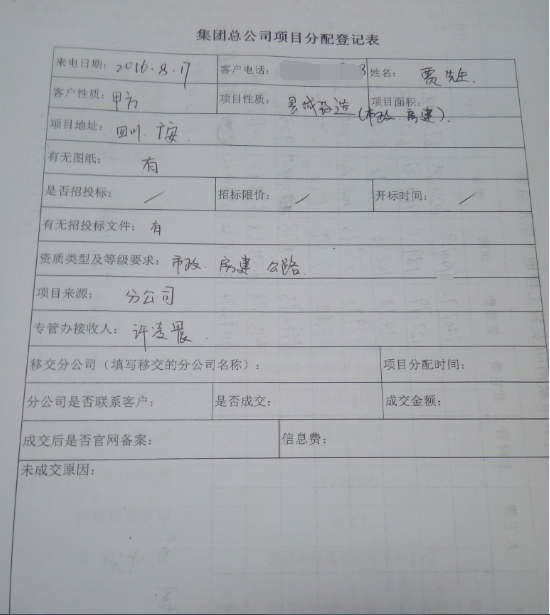 集团总公司项目分配登记表
来电日期: 2016.8.17 客户电话: 3 姓名: 贾先生.
客户性质: 甲方 项目性质: 县城改造(市政.房建). 项目面积:
项目地址: 四川.广安.
有无图纸: 有
是否招投标: / 招标限价: / 开标时间: /
有无招投标文件: 有
资质类型及等级要求: 市政.房建 公路.
项目来源: 分公司
专管办接收人: 许凌晨
移交分公司（填写移交的分公司名称）: 项目分配时间:
分公司是否联系客户: 是否成交: 成交金额:
成交后是否官网备案: 信息费:
未成交原因: